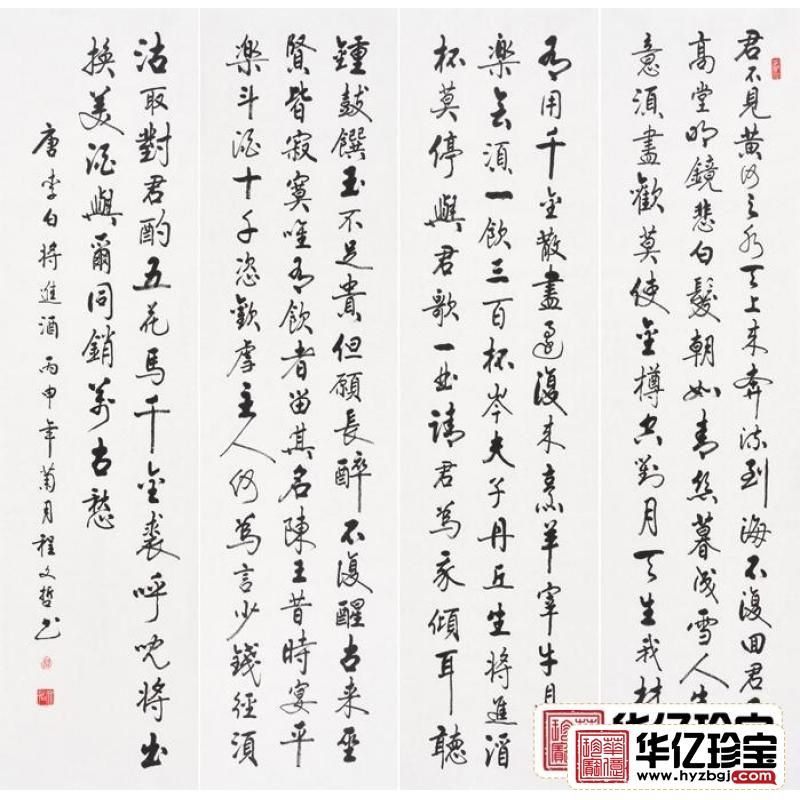 君不見黄河之水天上来奔流到海不復回君
高堂明鏡悲白髮朝如青絲暮成雪人生
意須盡歡莫使金樽空對月天生我材
有用千金散盡還復来烹羊宰牛且
楽會須一飲三百杯岑夫子丹丘生將進酒
杯莫停與君歌一曲請君為我傾耳聽
鍾鼓饌玉不足貴但願長醉不復醒古来聖
賢皆寂寞唯有飲者留其名陳王昔時宴平
楽斗酒十千恣歡虐主人何為言少錢徑須
沽取對君酌五花馬千金裘呼児將出
換美酒與爾同銷萬古愁
唐李白將進酒丙申年菊月程文哲书
华亿珍宝
www.hyzbgj.com